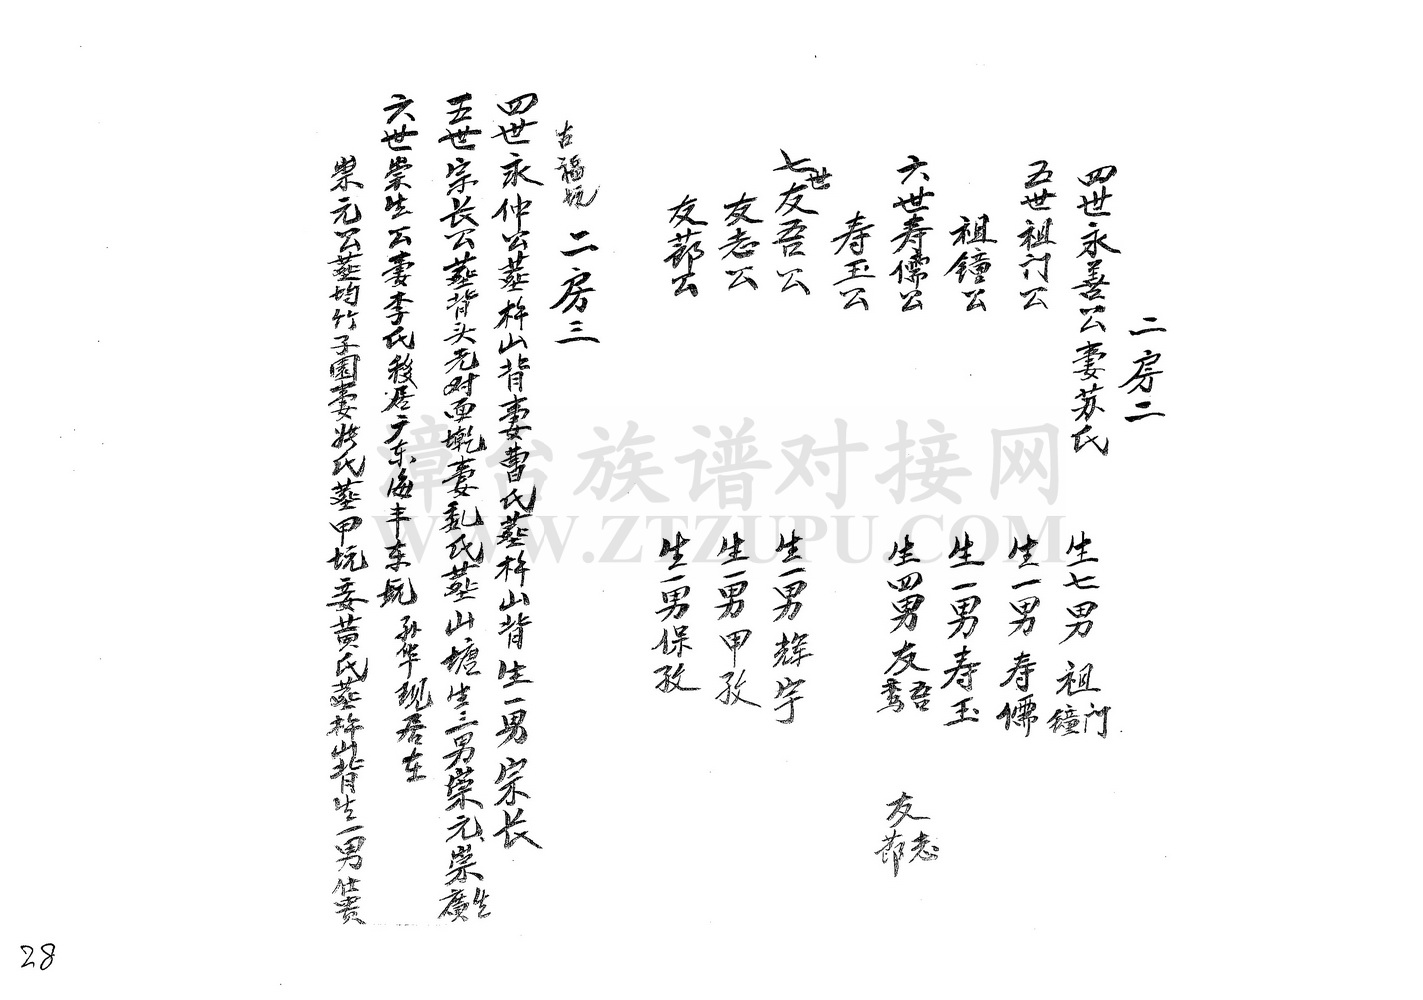 二房二
四世永善公妻苏氏 生七男 祖门 祖鐘
五世祖门公 生一男寿儒
祖鐘公 生一男寿玉
六世寿儒公 生四男友吾 友志
寿玉公
七世友吾公 生一男辉宇
友志公 生一男甲孜
友節公 生一男保孜
古福坑 二房三
四世永仲公墓杵山背妻曹氏墓杵山背生一男宗长
五世宗长公墓背头 对面 妻 氏墓山塘生三男崇元崇生廣
六世崇生公妻李氏移居广东海丰东坑 孙华现居东
崇元公墓均竹子園妻 氏墓甲坑妾黄氏墓杵山背生一男仕贵
漳台族谱对接网
WWW.ZTZUPU.COM
28